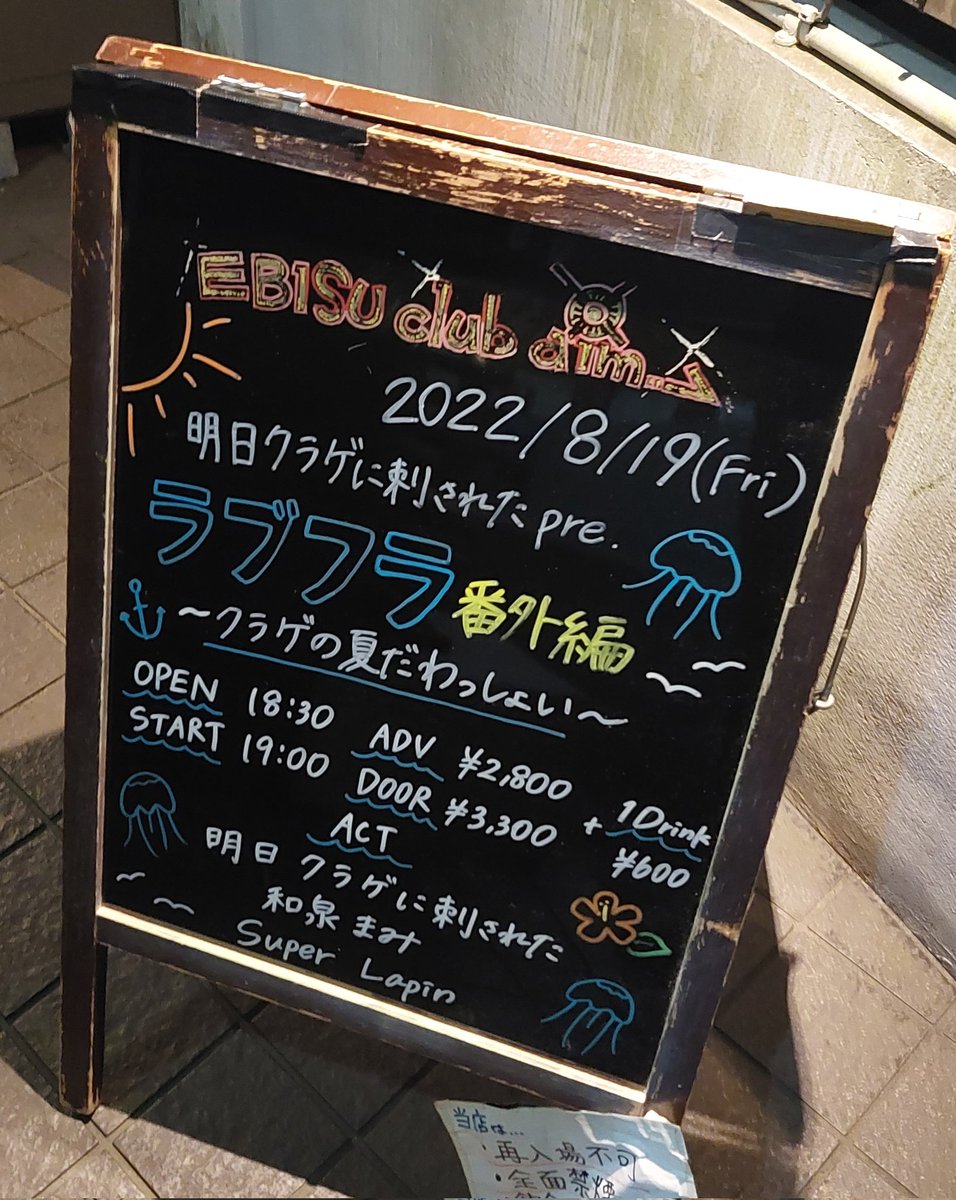 EBISU club aim
2022/8/19(Fri)
明日クラゲに刺されたpre.
ラブフラ 番外編
～クラゲの夏だわっしょい～
OPEN 18:30
START 19:00
ADV ¥2,800
DOOR ¥3,300
+ 1Drink
¥600
ACT
明日クラゲに刺された
和泉まみ
Super Lapin
当店は...
・再入場不可
・全面禁煙